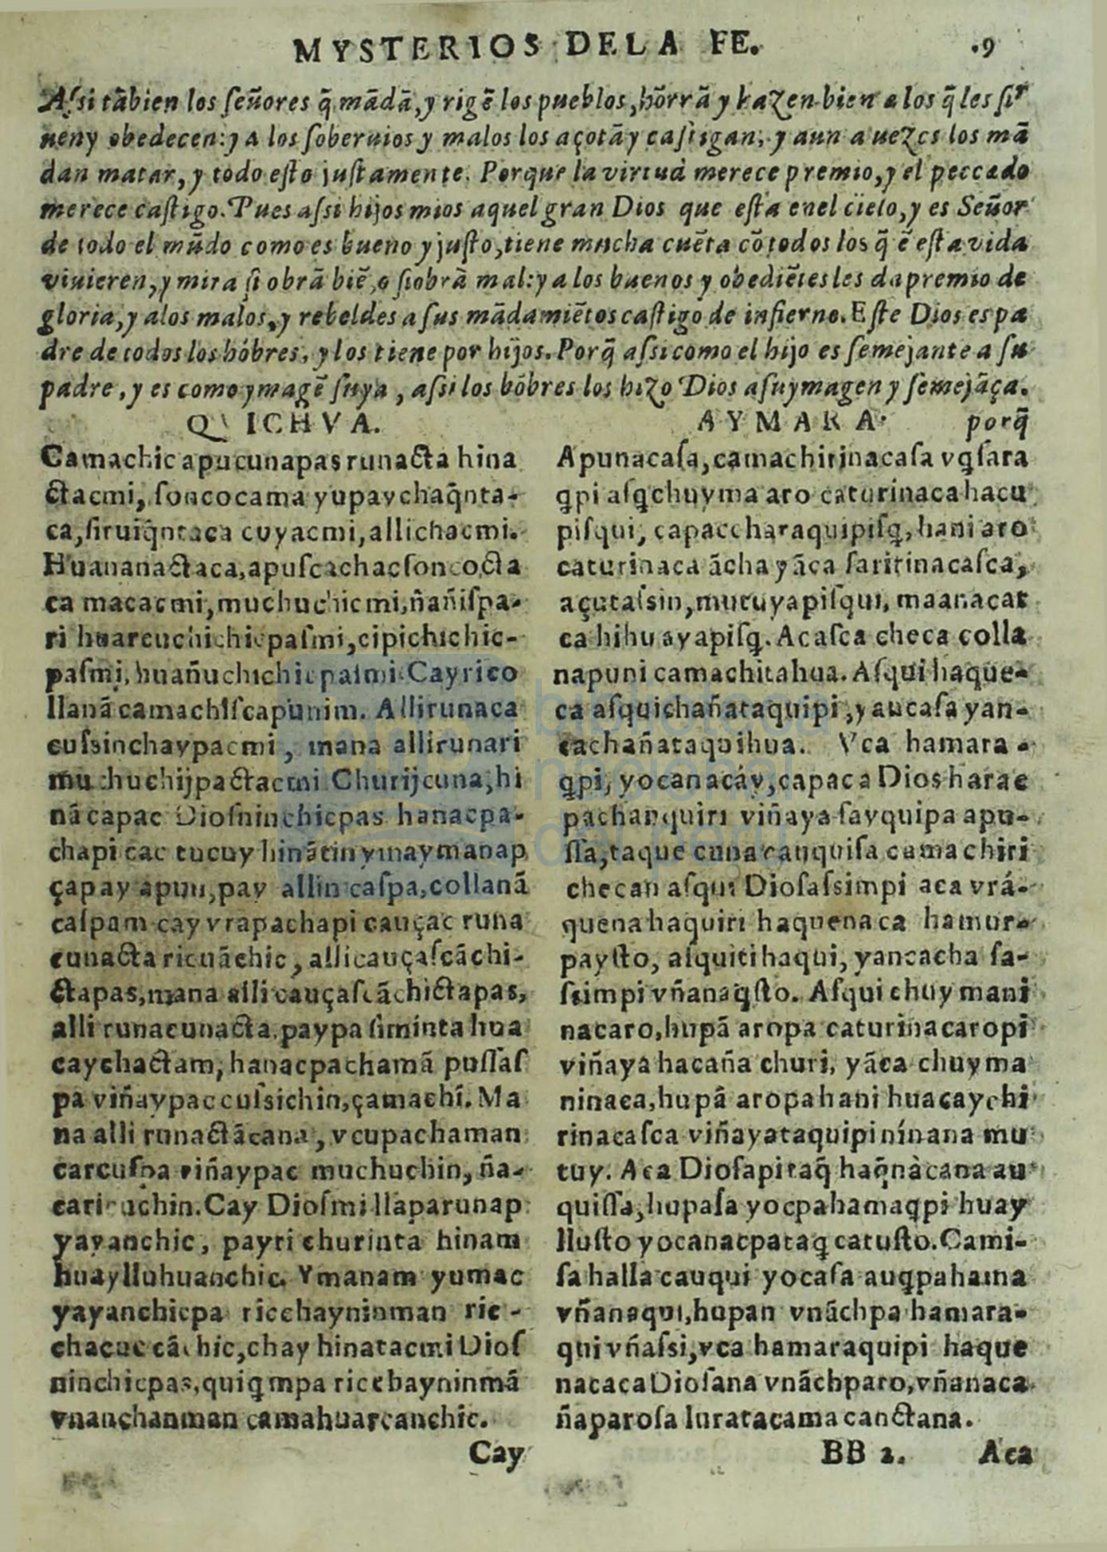 MYSTERIOS DE LA FE. 9
Assi tãbien los señores q̃ mãdã, y rigẽ los pueblos, hõrrã y hazen bien a los q̃ les sir
uen y obedecen: y a los soberuios y malos los açotã y castigan, y aun a uezes los mã
dan matar, y todo esto justamente. Porque la virtud merece premio, y el peccado
merece castigo. Pues assi hijos mios aquel gran Dios que esta enel cielo, y es Señor
de todo el mũdo como es bueno y justo, tiene mucha cuẽta cõ todos los q̃ ẽ esta vida
viuieren, y mira si obrã biẽ, o si obrã mal: y a los buenos y obediẽtes les da premio de
gloria, y alos malos, y rebeldes a sus mãdamiẽtos castigo de infierno. Este Dios es pa
dre de todos los hõbres, y los tiene por hijos. Porq̃ assi como el hijo es semejante a su
padre, y es como ymagẽ suya, assi los hõbres los hizo Dios a su ymagen y semejãça.
porq̃
QVICHVA.
Camachic apucunapas runacta hina
ctacmi, soncocama yupaychaq̃nta-
ca, siruiq̃ntaca cuyacmi, allichacmi.
Huananactaca, apuscachacsoncocta
ca macacmi, muchuchicmi, ñañispa-
ri huarcuchichicpasmi, cipichichic-
pasmi, huañuchichicpasmi. Cayrico
llanã camachiscapunim. Allirunaca
cussinchaypacmi, mana allirunari
muchuchijpactacmi Churijcuna, hi
nã capac Diosninchicpas hanacpa-
chapi cac tucuy hinãtin ymaymanap
çapay apun, pay allin caspa, collanã
caspam cay vrapachapi cauçac runa
cunacta ricuãchic, allicauçascãchi-
ctapas, mana alli cauçascãchictapas,
alli runacunacta, paypa siminta hua
caychactam, hanacpachamã pussas
pa viñaypac cusichin, çamachí. Ma
na alli runactãcana, vcupachaman
carcuspa viñaypac muchuchin, ña-
carichin. Cay Diosmi llaparunap
yayanchic, payri churinta hinam
huaylluhuanchic. Ymanam yumac
yayanchicpa ricchayninman ric-
chacuc cãchic, chay hinatacmi Dios
ninchicpas, quiq̃mpa ricchayninmã
vnanchanman camahuarcanchic.
Cay
AYMARA.
Apunacasa, camachirinacasa vq̃sara
q̃pi asq̃chuyma aro caturinaca hacu
pisqui, capaccharaquipisq̃, hani aro
caturinaca ãcha yãca saririnacasca,
açutassin, mutuyapisqui, maanacat
ca hihuayapisq̃. Acasca checa colla
napuni camachitahua. Asqui haque-
ca asquichañataquipi, y aucasa yan-
cachañataquihua. Vca hamara-
q̃pi, yocanacáy, capaca Dios harac
pachanquiri viñaya sayquipa apu-
ssa, taque cunacauquisa camachiri
checan asqui Diosassimpi aca vrá-
quena haquiri haquenaca hamur-
paysto, asquiti haqui, yancacha sa-
ssimpi vñanaq̃sto. Asqui chuymani
nacaro, hupã aropa caturinacaropi
viñaya hacaña churi, yãca chuyma
ninaca, hupã aropa hani huacaychi
rinacasca viñayataquipi nínana mu
tuy. Aca Diosapitaq̃ haq̃nàcana au
quissa, hupasa yocpahamaq̃pi huay
llusto yocanacpataq̃ catusto. Cami-
sa halla cauqui yocasa auq̃pahama
vñanaqui, hupan vnãchpa hamara-
qui vñassi, vca hamaraquipi haque
nacaca Diosana vnãchparo, vñanaca
ñaparosa luratacama canctana.
BB 2. Aca